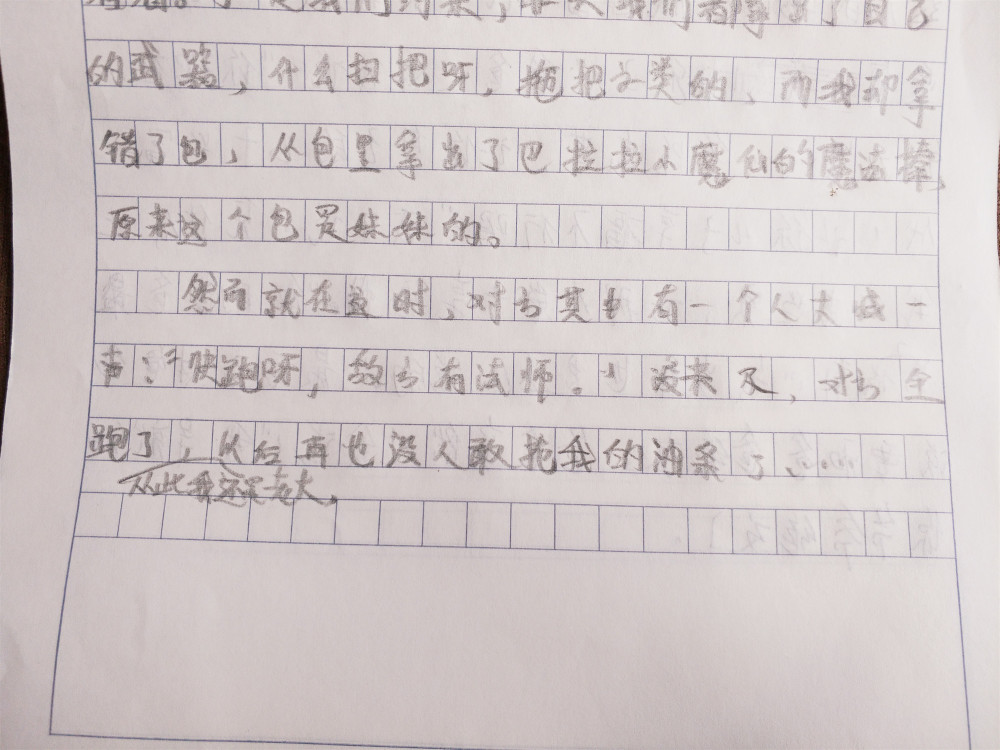 的武器，什么扫把呀，拖把之类的，而我却拿
错了包，从包里拿出了巴拉拉小魔仙的魔法棒，
原来这个包是妹妹的。
然而就在这时，对方其中有一个人大喊一
声：“快跑呀，敌方有法师。”没来及，对方全
跑了，从后再也没人敢抢我的油条了……
从此我还是老大。